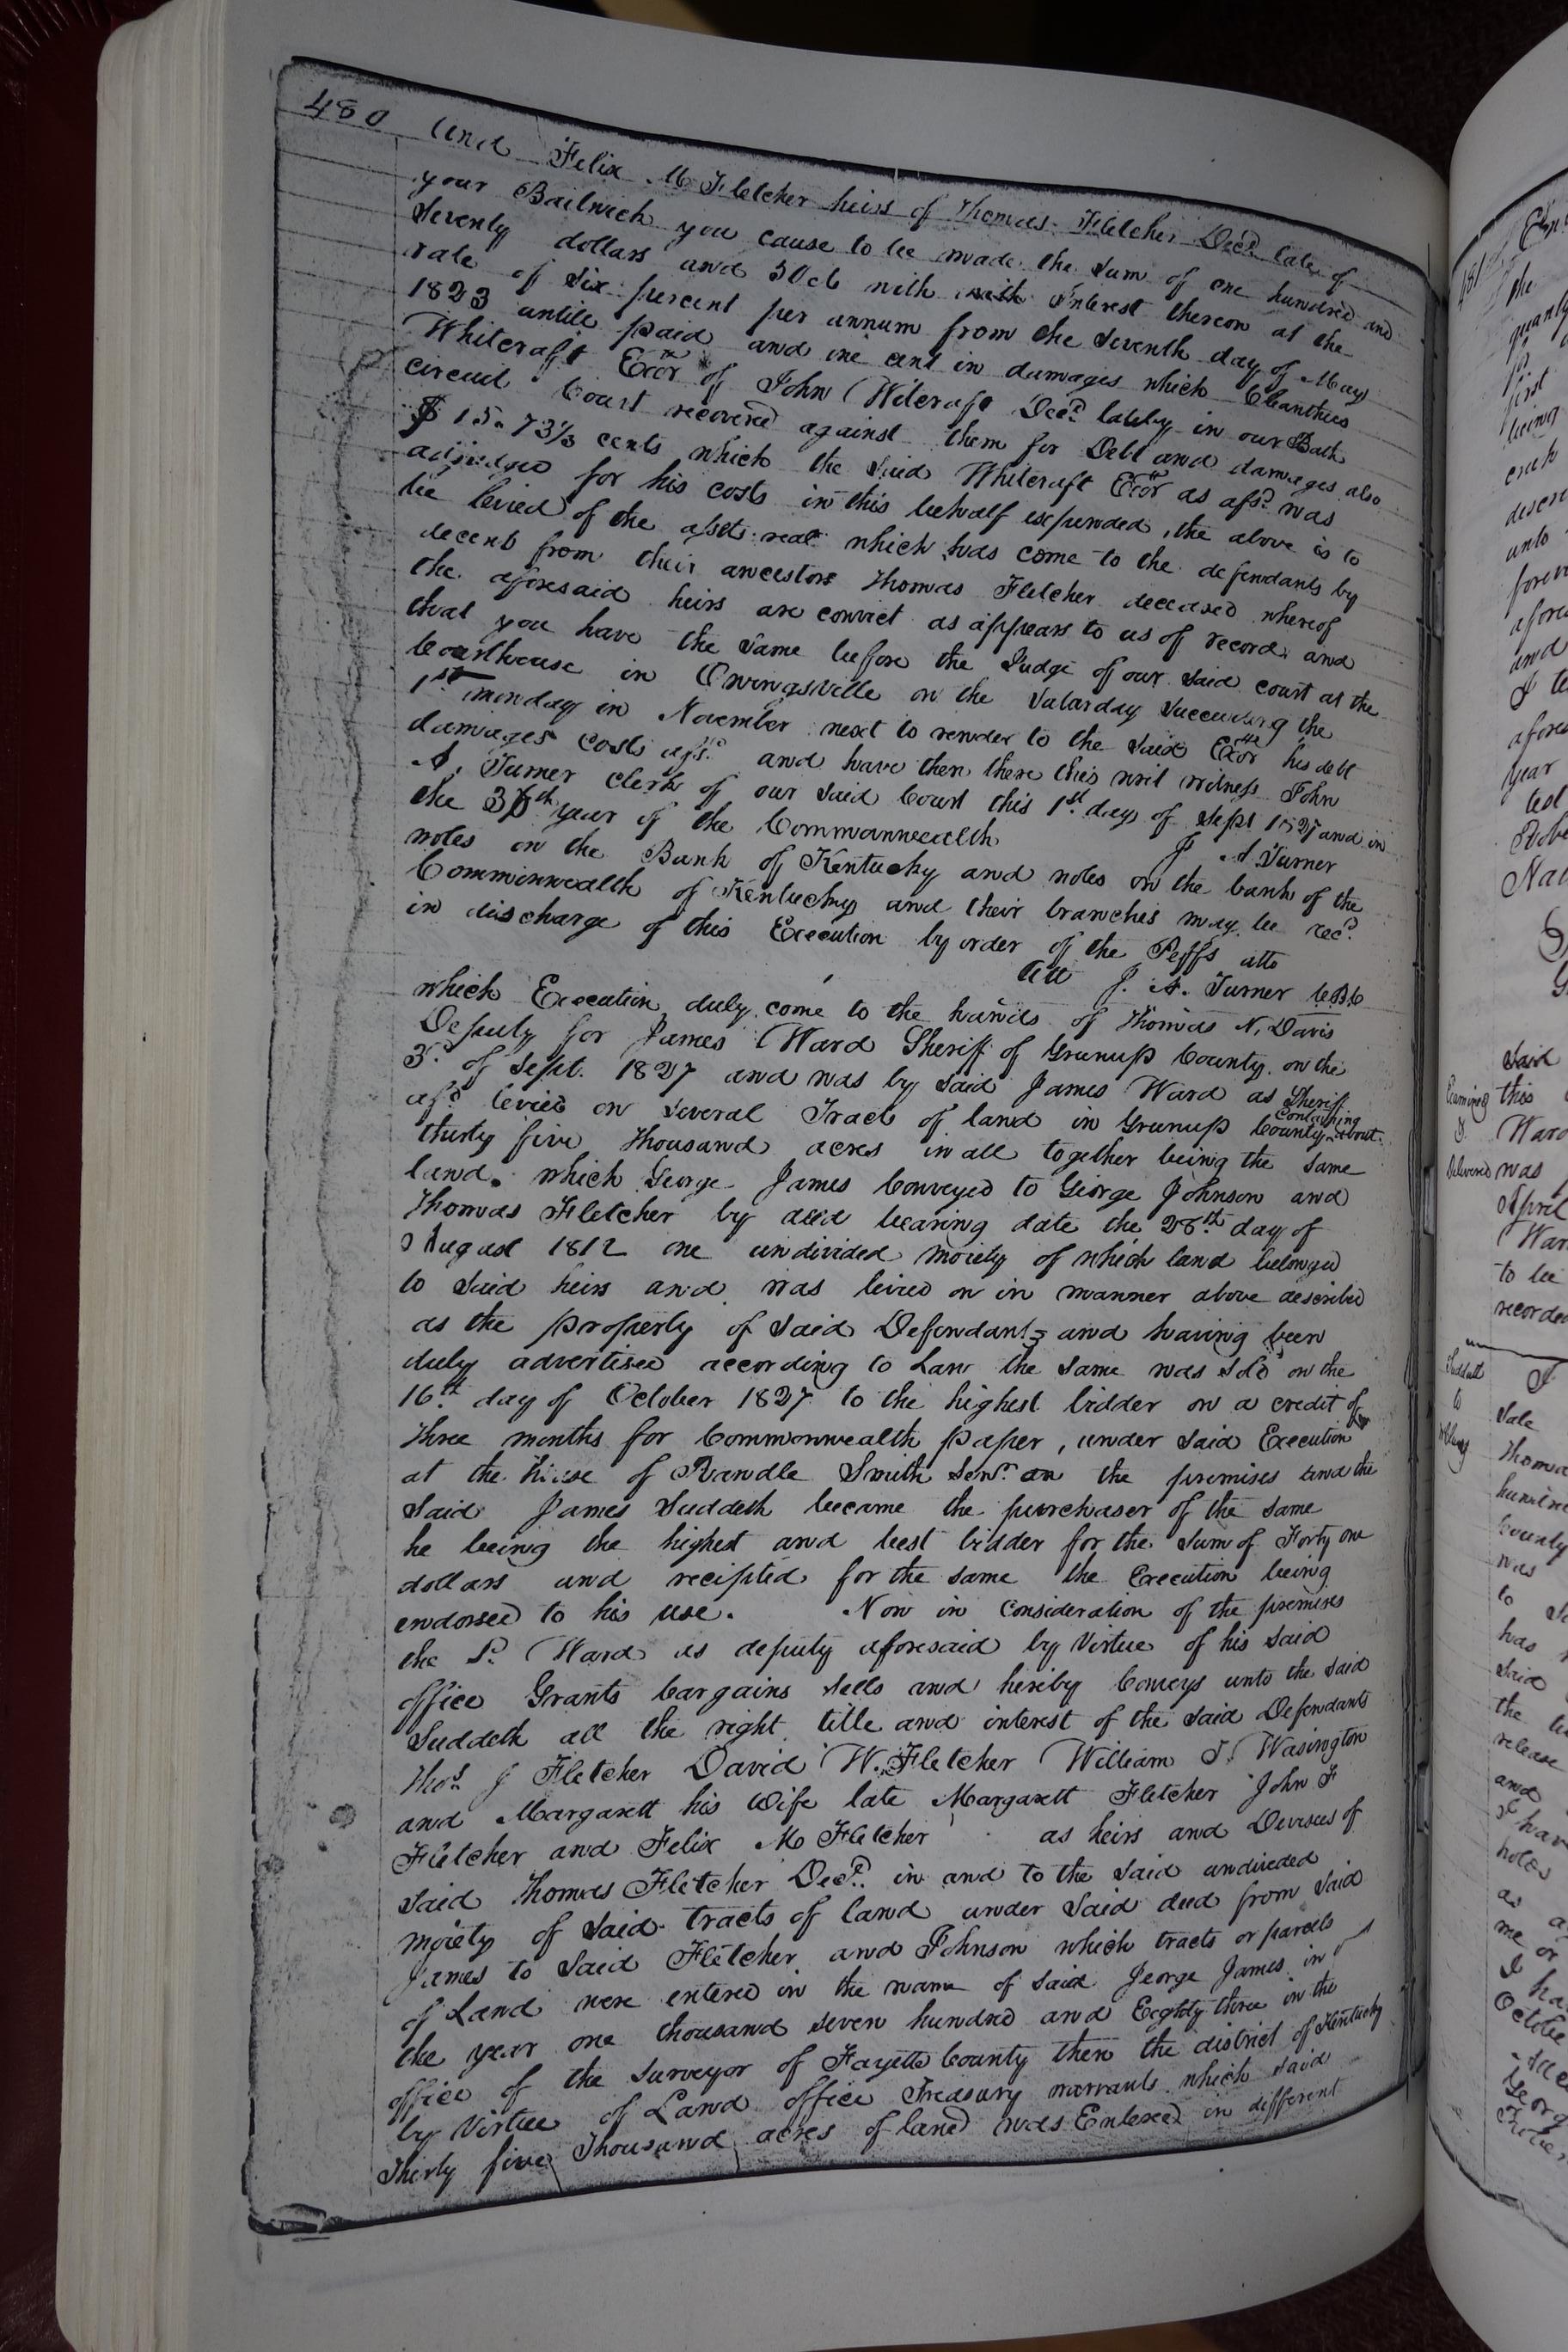 480 and Felix M Fletcher heirs of Thomas Fletcher Decd. late of
your Bailwick you cause to be made the sum of one hundred and
Seventy dollars and 50cts with with Interest thereon at the
rate of Six percent per annum from the Seventh day of May
1823 untill paid and one cent in damages which Cleanthus
Whitcraft Exor of John Witcraft Decd. lately in our Bath
circuit Court recovered against them for Debt and damages also
$ 15.73⅓ cents which the said Whitcraft Exor as afsd. was
adjudged for his costs in this behalf expended, the above is to
be levied of the assets real which has come to the defendants by
decent from their ancestors Thomas Fletcher deceased whereof
the aforesaid heirs are convict as appears to us of record and
that you have the same before the Judge of our said court at the
Courthouse in Owingsville on the Saturday succeeding the
1st monday in November next to render to the said Exor his debt
damages costs afsd. and have then there this writ witness John
A. Turner clerk of our said Court this 1st. day of Sept 1827 and in
the 36th year of the Commonwealth J. A Turner
notes on the Bank of Kentucky and notes on the bank of the
Commonwealth of Kentucky and their branches may be recd.
in discharge of this Execution by order of the Peffs atto
Att J. A. Turner
which Execution duly come to the hands of Thomas N. Davis
Deputy for James Ward Sheriff of Grunup County on the
3d. of Sept. 1827 and was by said James Ward as Sheriff
afsd. levied on several Tracts of land in Grunup County containing about
thirty five thousand acres in all together being the same
land. which George James Conveyed to George Johnson and
Thomas Fletcher by deed bearing date the 28th. day of
August 1812 one undivided moiety of which land belonged
to said heirs and was levied on in manner above described
as the property of said Defendants and having been
duly advertised according to Law the same was sold on the
16th. day of October 1827 to the highest bidder on a credit of
three months for Commonwealth paper, under said Execution
at the house of Randle Smith Senr. on the premises and the
said James Suddeth became the purchaser of the same
he being the highest and best bidder for the sum of Forty one
dollars and recipted for the same the Execution being
endorsed to his use. Now in consideration of the premises
the Sd. Ward as deputy aforesaid by Virtue of his said
office Grants bargains sells and hereby Conveys unto the said
Suddeth all the right title and interest of the said Defendants
Thos. J Fletcher David W. Fletcher William T. Wasington
and Margarett his Wife late Margarett Fletcher John F
Fletcher and Felix M Fletcher as heirs and Devisees of
said Thomas Fletcher Decd. in and to the said undivided
moiety of said tracts of land under said deed from said
James to said Fletcher and Johnson which tracts or parcels
of Land were entered in the name of said George James in
the year one thousand seven hundred and Eighty three in the
office of the surveyor of Fayette County then the district of Kentucky
by Virtue of Land office Treasury warrants which said
Thirty five Thousand acres of land was Entered in different
481
the
first
being
each
unto
and
year
said
this
Examined
Ward
Delivered was
April
to be
recorded
Suddeth
to
sale
County
was
to
has
said
the
release
and
notes
as
me or
I ha